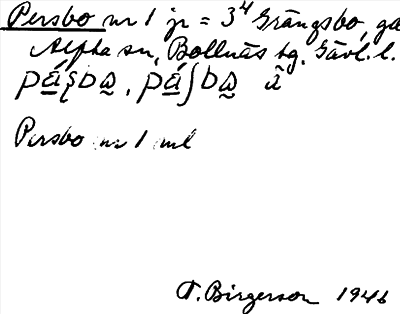 Persbo nr 1 jr = 3⁴ Grängsbo, ga
Alfta sn, Bollnäs tg. Gävl. l.
Persbo nr 1 ml
T. Birgerson 1946